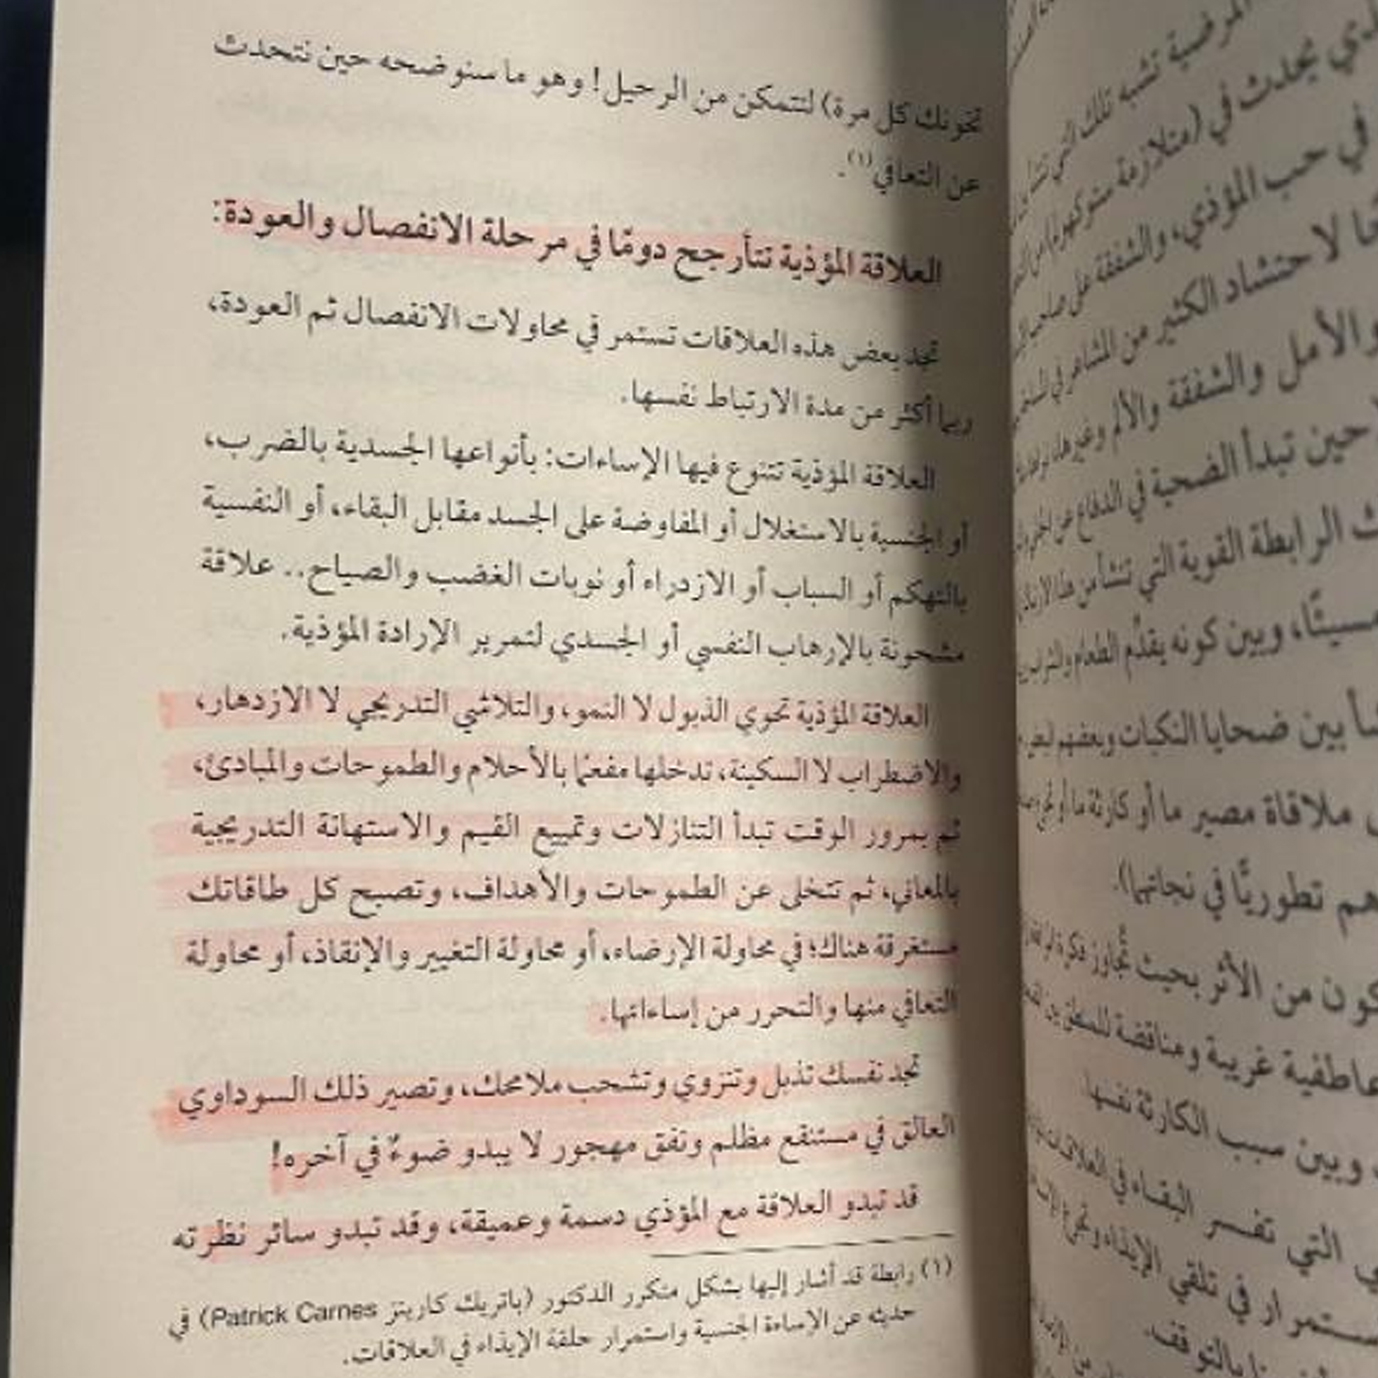 تخونك كل مرة) لتتمكن من الرحيل! وهو ما سنوضحه حين نتحدث
عن التعافي(١).
العلاقة المؤذية تتأرجح دومًا في مرحلة الانفصال والعودة:
تجد بعض هذه العلاقات تستمر في محاولات الانفصال ثم العودة،
ربما أكثر من مدة الارتباط نفسها.
العلاقة المؤذية تتنوع فيها الإساءات: بأنواعها الجسدية بالضرب،
أو الجنسية بالاستغلال أو المفاوضة على الجسد مقابل البقاء، أو النفسية
بالتهكم أو السباب أو الازدراء أو نوبات الغضب والصياح.. علاقة
مشحونة بالإرهاب النفسي أو الجسدي لتمرير الإرادة المؤذية.
العلاقة المؤذية تحوي الذبول لا النمو، والتلاشي التدريجي لا الازدهار،
والاضطراب لا السكينة، تدخلها مفعمًا بالأحلام والطموحات والمبادئ،
ثم بمرور الوقت تبدأ التنازلات وتمييع القيم والاستهانة التدريجية
بالمعاني، ثم تتخلى عن الطموحات والأهداف، وتصبح كل طاقاتك
مستغرقة هناك؛ في محاولة الإرضاء، أو محاولة التغيير والإنقاذ، أو محاولة
التعافي منها والتحرر من إساءاتها.
تجد نفسك تذبل وتنزوي وتشحب ملامحك، وتصير ذلك السوداوي
العالق في مستنقع مظلم ونفق مهجور لا يبدو ضوءٌ في آخره!
قد تبدو العلاقة مع المؤذي دسمة وعميقة، وقد تبدو سائر نظرته
(١) رابطة قد أشار إليها بشكل متكرر الدكتور (باتريك كارينز Patrick Carnes) في
حديثه عن الإساءة الجنسية واستمرار حلقة الإيذاء في العلاقات.
المرضية تشبه تلك التي
ذي يحدث في (متلازمة ستوكهولم)
في حب المؤذي، والشفقة على
لاحتشاد الكثير من المشاعر في
والأمل والشفقة والألم وغيرها
حين تبدأ الضحية في الدفاع عن
الرابطة القوية التي تنشأ من هذا
مسيئًا، وبين كونه يقدِّم الطعام والشراب
بين ضحايا النكبات وبعضهم
ملاقاة مصير ما أو كارثة ما أو
هم تطوريًّا في نجاتها).
كون من الأثر بحيث تُجاوز فكرة
عاطفية غريبة ومناقضة للمنطق بين
وبين سبب الكارثة نفسها
التي تفسر البقاء في العلاقات
ستمرار في تلقي الإيذاء
بالتوقف.